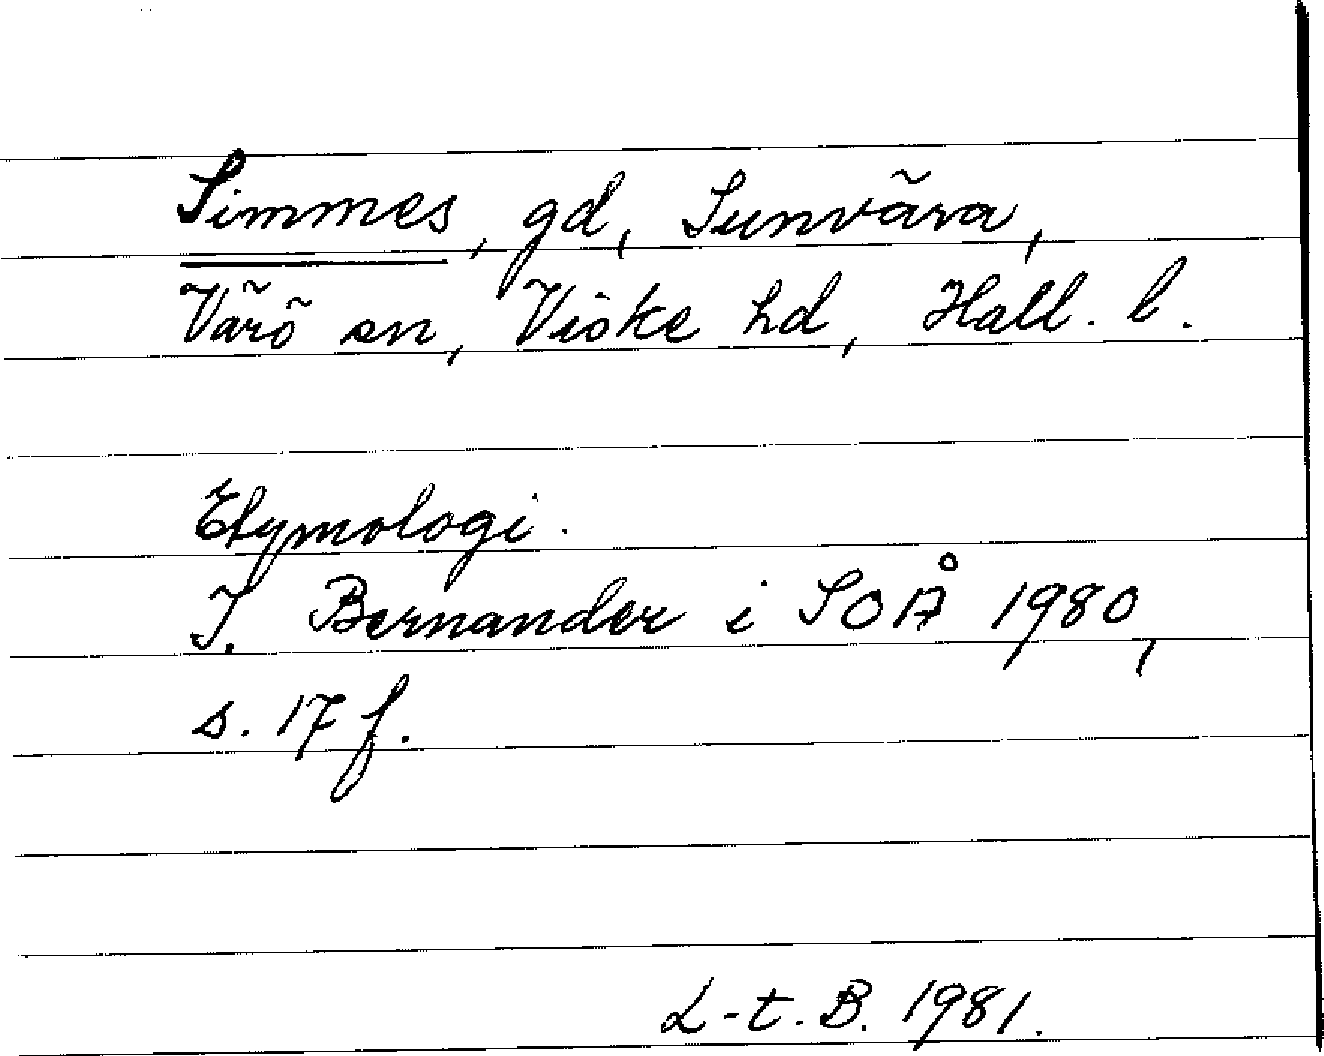 Simmes, gd, Sunvära,
Värö sn, Viske hd, Hall. l.
Etymologi.
I. Bernander i SOÅ 1980,
s. 17 f.
L-t. B. 1981.